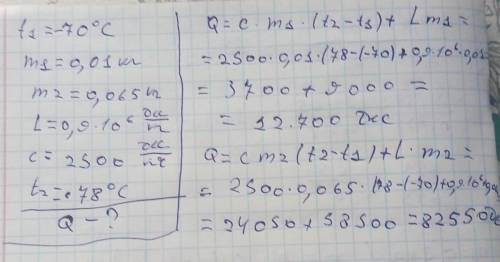 t₁=-70°C
m₁=0,01 кг
m₂=0,065 кг
L=0,9·10⁶ Дж/кг
c=2500 Дж/кг
t₂=+78°C
Q-?
Q=c·m₁·(t₂-t₁)+Lm₁=
=2500·0,01·(78-(-70)+0,9·10⁶·0,01
=3700+9000=
=12.700 Дж
Q=cm₂(t₂-t₁)+L·m₂=
=2500·0,065·(78-(-70)+0,9·10⁶
=24050+58500=82550